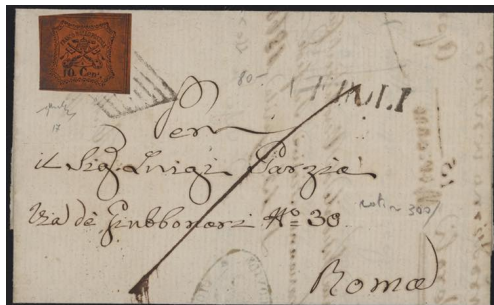 10 Cent.
80-
TIVOLI
Per
il Sig. Luigi Garzia
Via de Giubbonari No 30
17
Roma